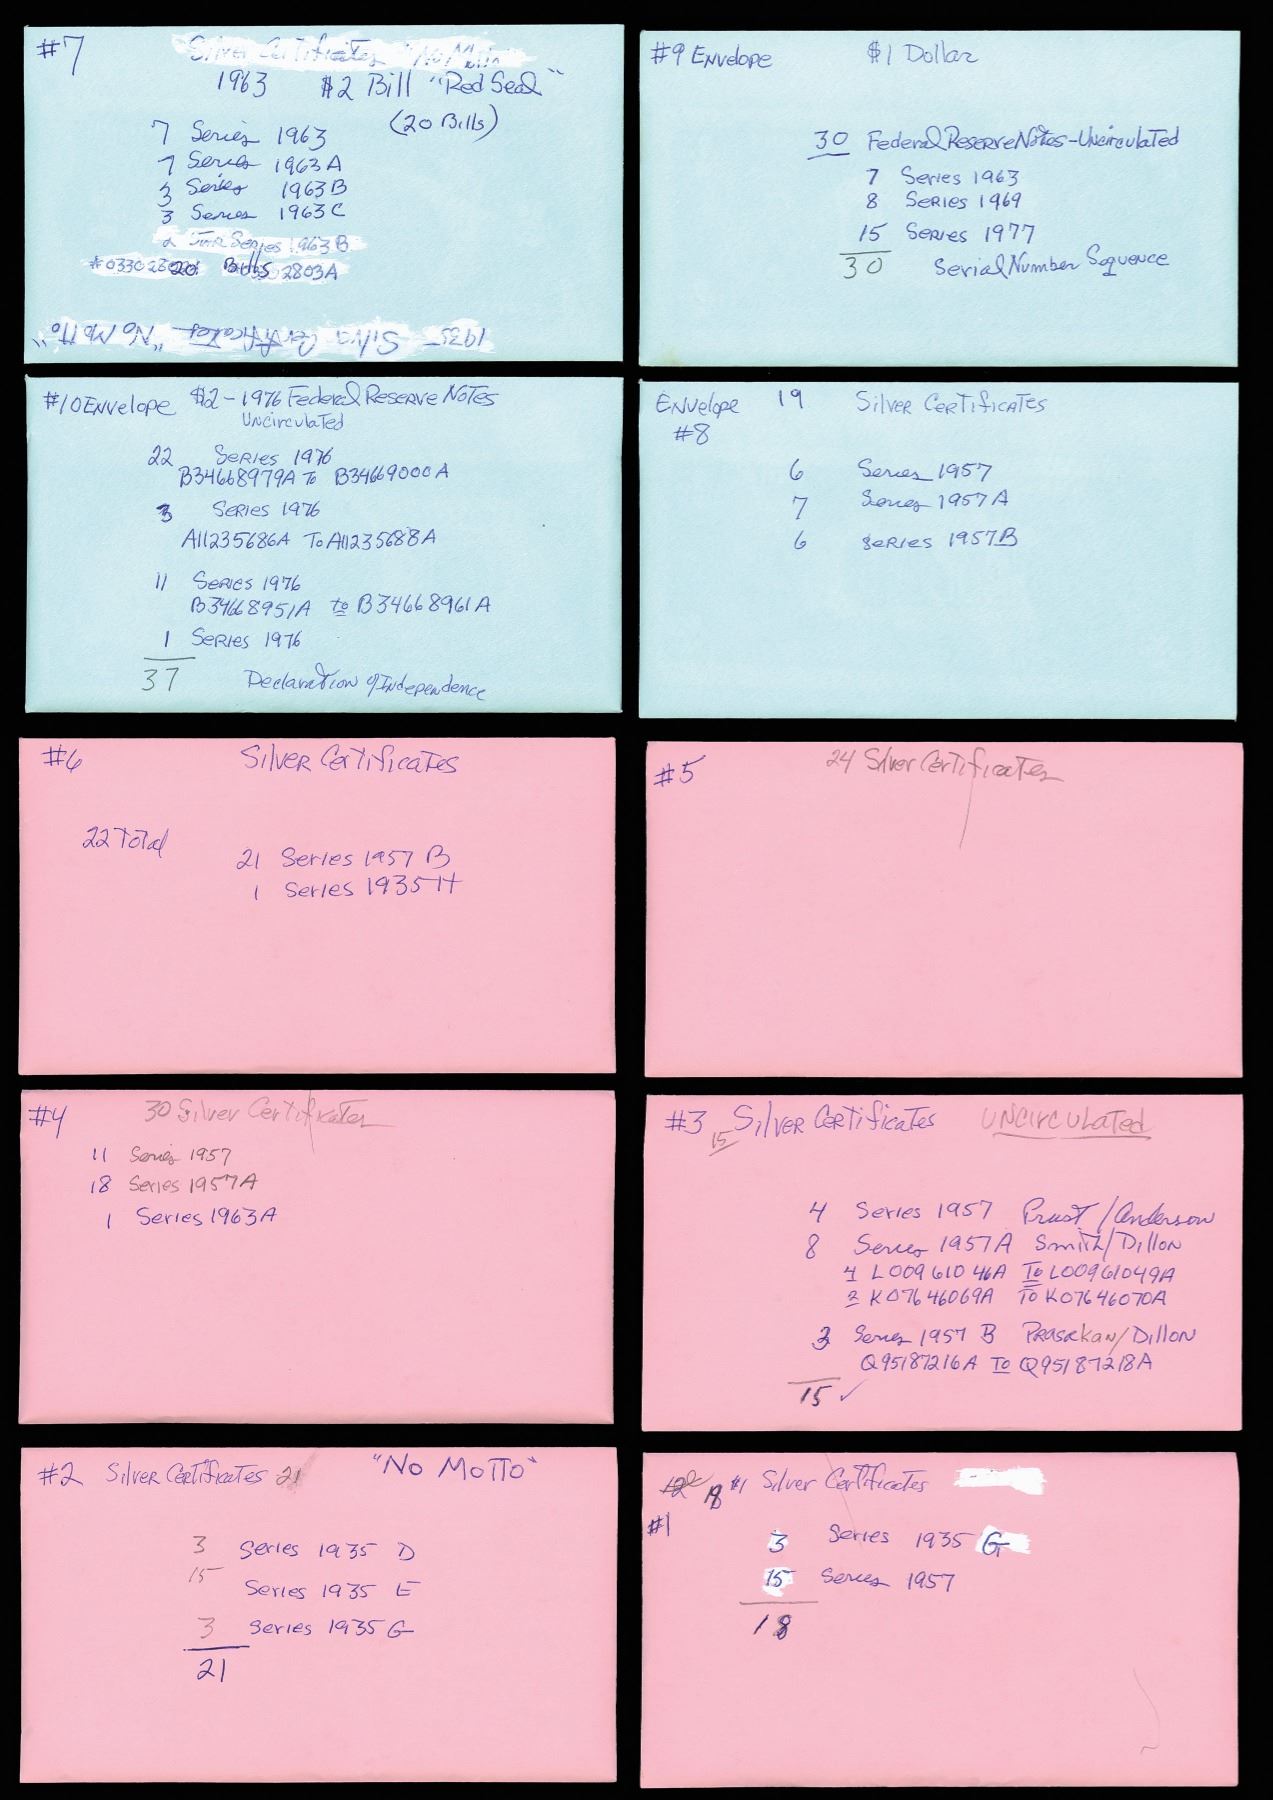 #7
Silver Certificates "No Motto"
1963 $2 Bill "Red Seal"
(20 Bills)
7 Series 1963
7 Series 1963A
3 Series 1963B
3 Series 1963C
2 Star Series 1963B
20 Bills 2803A
1935 Silver Certificates "No Motto"
#9 Envelope $1 Dollar
30 Federal Reserve Notes-Uncirculated
7 Series 1963
8 Series 1969
15 Series 1977
30 Serial Number Sequence
#10 Envelope $2-1976 Federal Reserve Notes
Uncirculated
22 Series 1976
B34668979A To B34669000A
3 Series 1976
A11235686A To A11235688A
11 Series 1976
B34668951A to B34668961A
1 Series 1976
37 Declaration of Independence
Envelope 19 Silver Certificates
#8
6 Series 1957
7 Series 1957A
6 Series 1957B
#6 Silver Certificates
22 Total
21 Series 1957 B
1 Series 1935H
#5 24 Silver Certificates
#4 30 Silver Certificates
11 Series 1957
18 Series 1957A
1 Series 1963A
#3 15 Silver Certificates Uncirculated
4 Series 1957 Priest/Anderson
8 Series 1957A Smith/Dillon
4 L00961046A To L00961049A
2 K07646069A To K07646070A
3 Series 1957 B Dillon
Q95187216A To Q95187218A
15 ✓
#2 Silver Certificates 21 "No Motto"
3 Series 1935 D
15 Series 1935 E
3 Series 1935 G
21
18 #1 Silver Certificates
#1
3 Series 1935 G
15 Series 1957
18